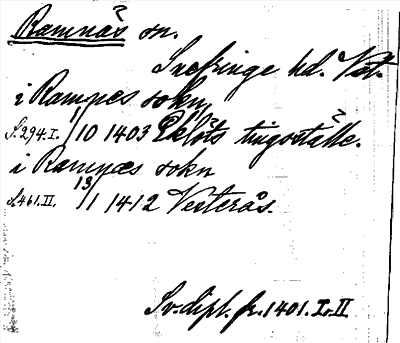 Ramnäs sn.
Snefringe hd. Vst.
i Ramnes sokn
S. 294. I. 1/10 1403 Eklöts tingsställe.
i Ramnæs sokn
S. 461. II. 13/1 1412 Vesterås.
Sv. dipl. fr. 1401. I. II